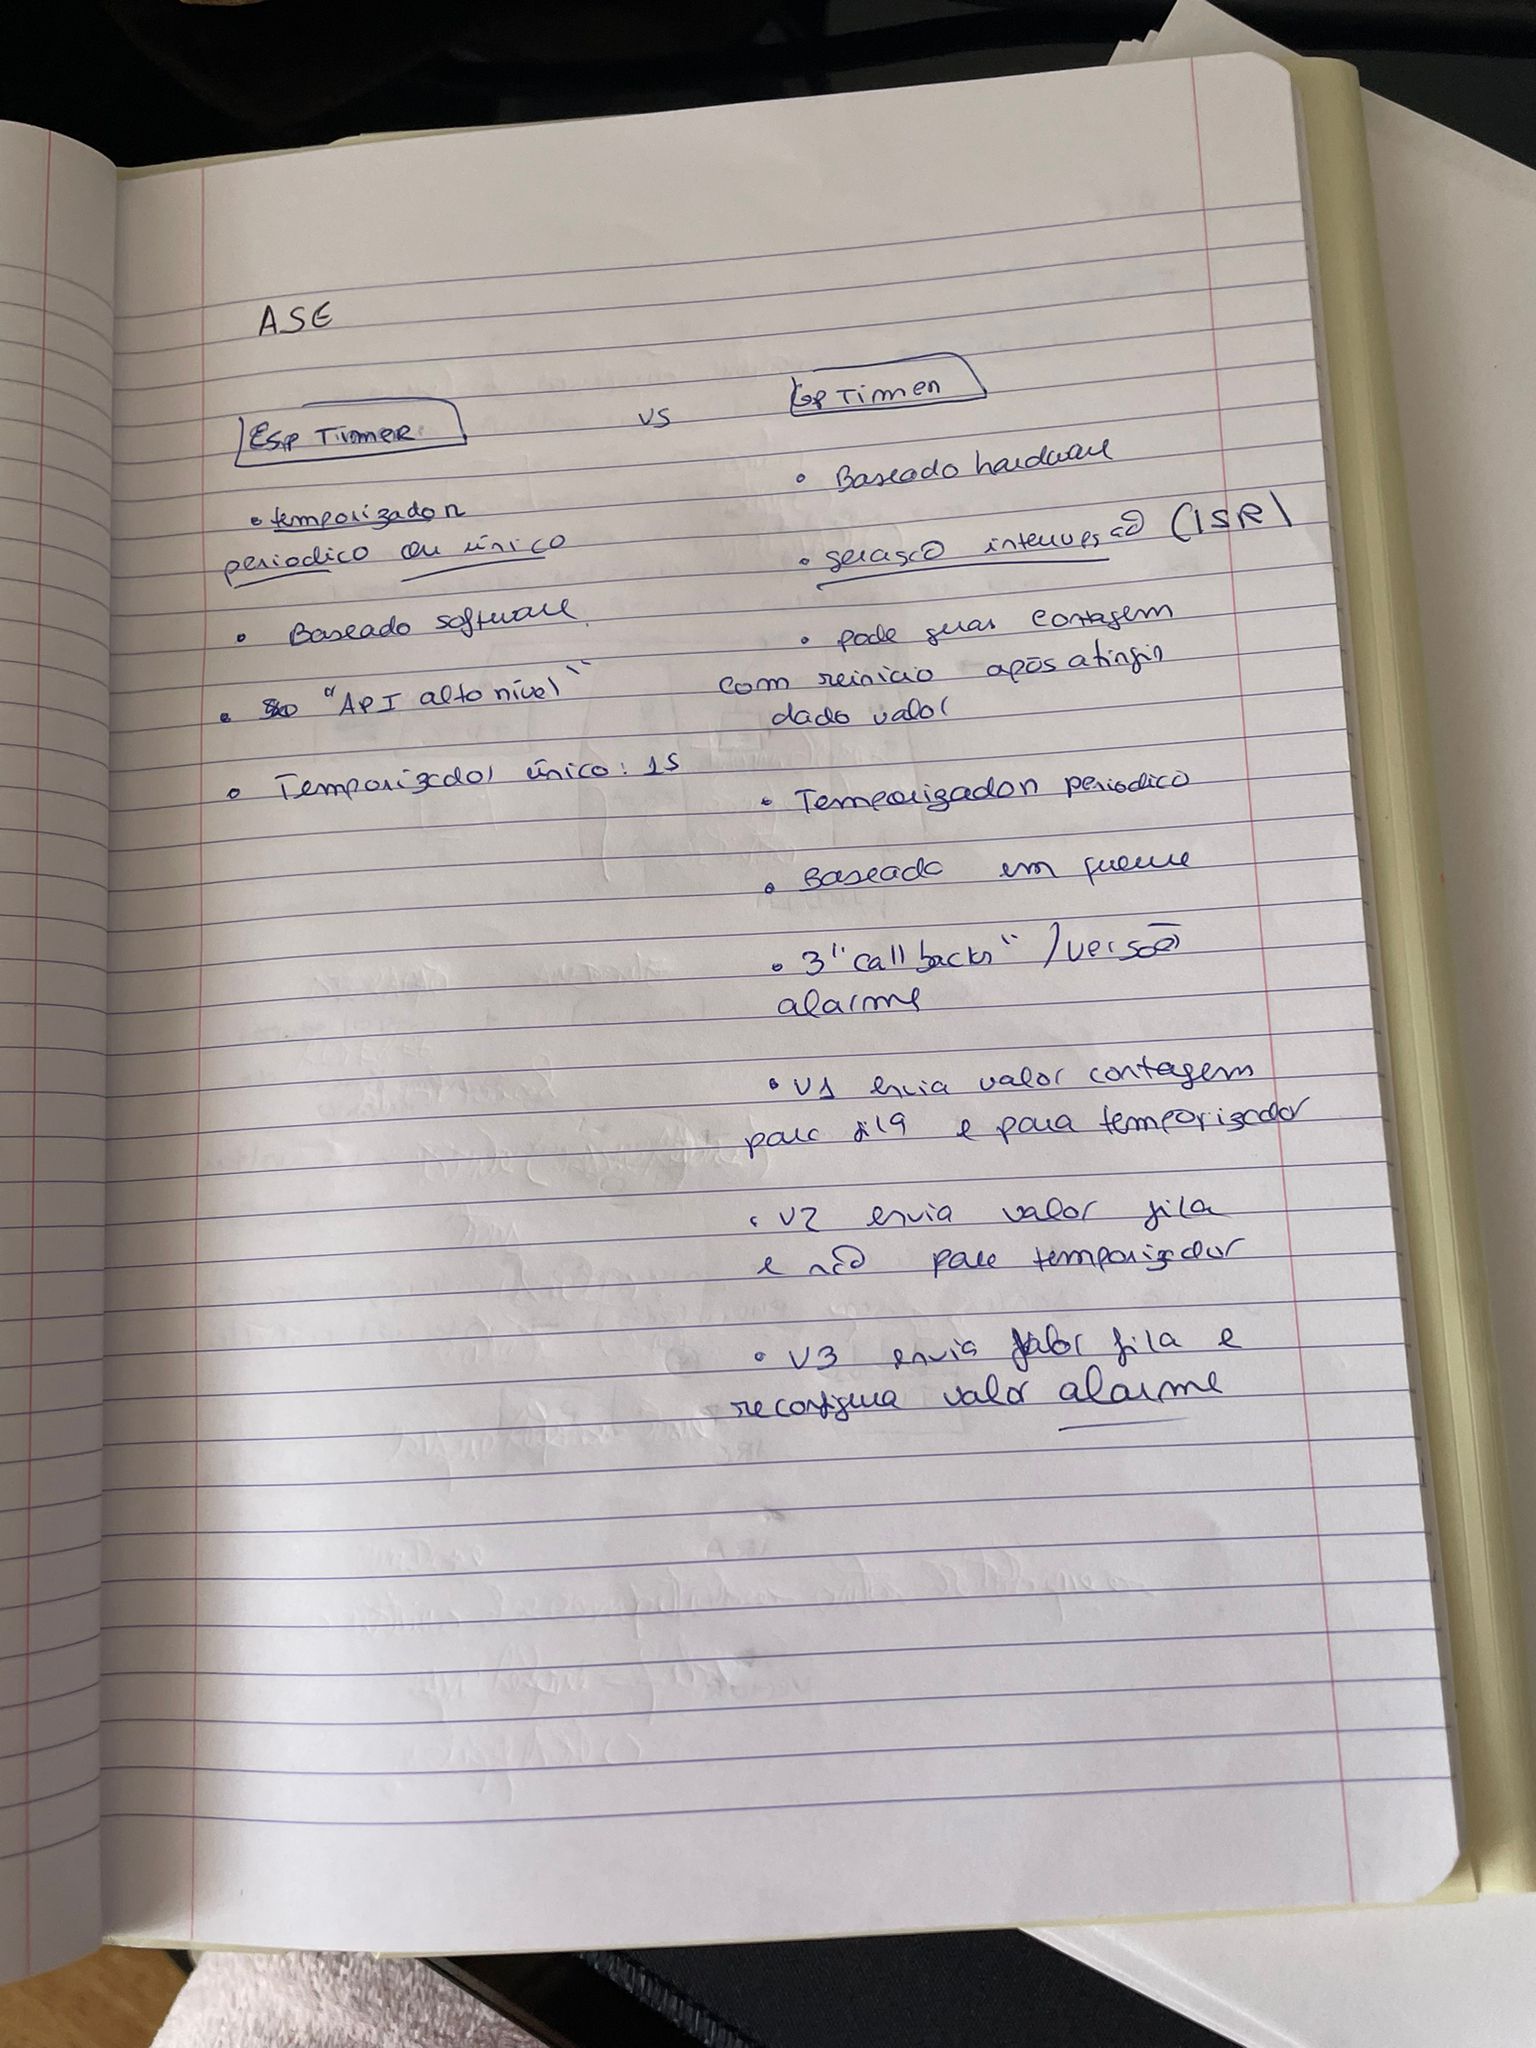 ASE
Esp Timer
vs
Gp Timer
• temporizador
periodico ou único
• Baseado software
• "API alto nível"
• Temporizador único: 1s
• Baseado hardware
• geração interrupção (ISR)
• pode gerar contagem
com reinicio após atingir
dado valor
• Temporizador periodico
• Baseado em queue
• 3 "callbacks" / versão
alarme
• V1 envia valor contagem
para fila e para temporizador
• V2 envia valor fila
e não para temporizador
• V3 envia valor fila e
reconfigura valor alarme